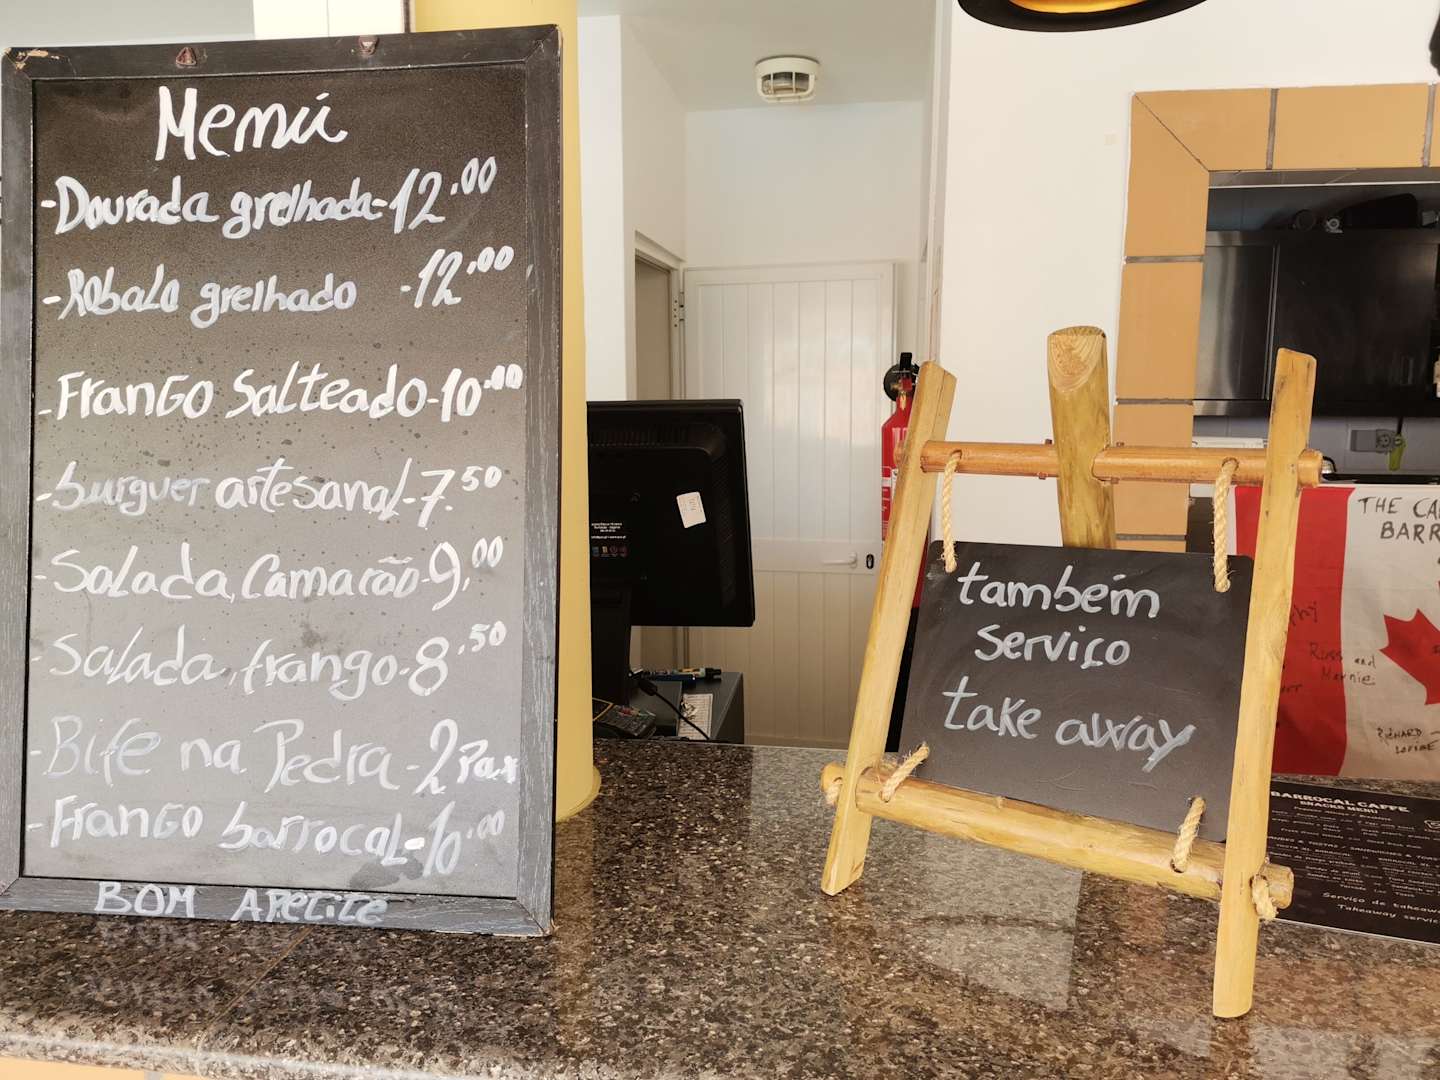 Menú
-Dourada grelhada-12.00
-Robalo grelhado -12.00
-FranGO SalTeado-10.00
-burguer artesanal-7.50
-Salada, Camarão-9,00
-Salada, frango-8.50
-Bife na Pedra-2 Pax
-FranGO barrocal-10.00
BOM APetite
também
serviço
take away
THE CA
BARR
Ross and
Marnie
RICHARD
LOUISE
BARROCAL CAFFE
SNACKS MENU
Serviço de takeawa
Takeaway servic